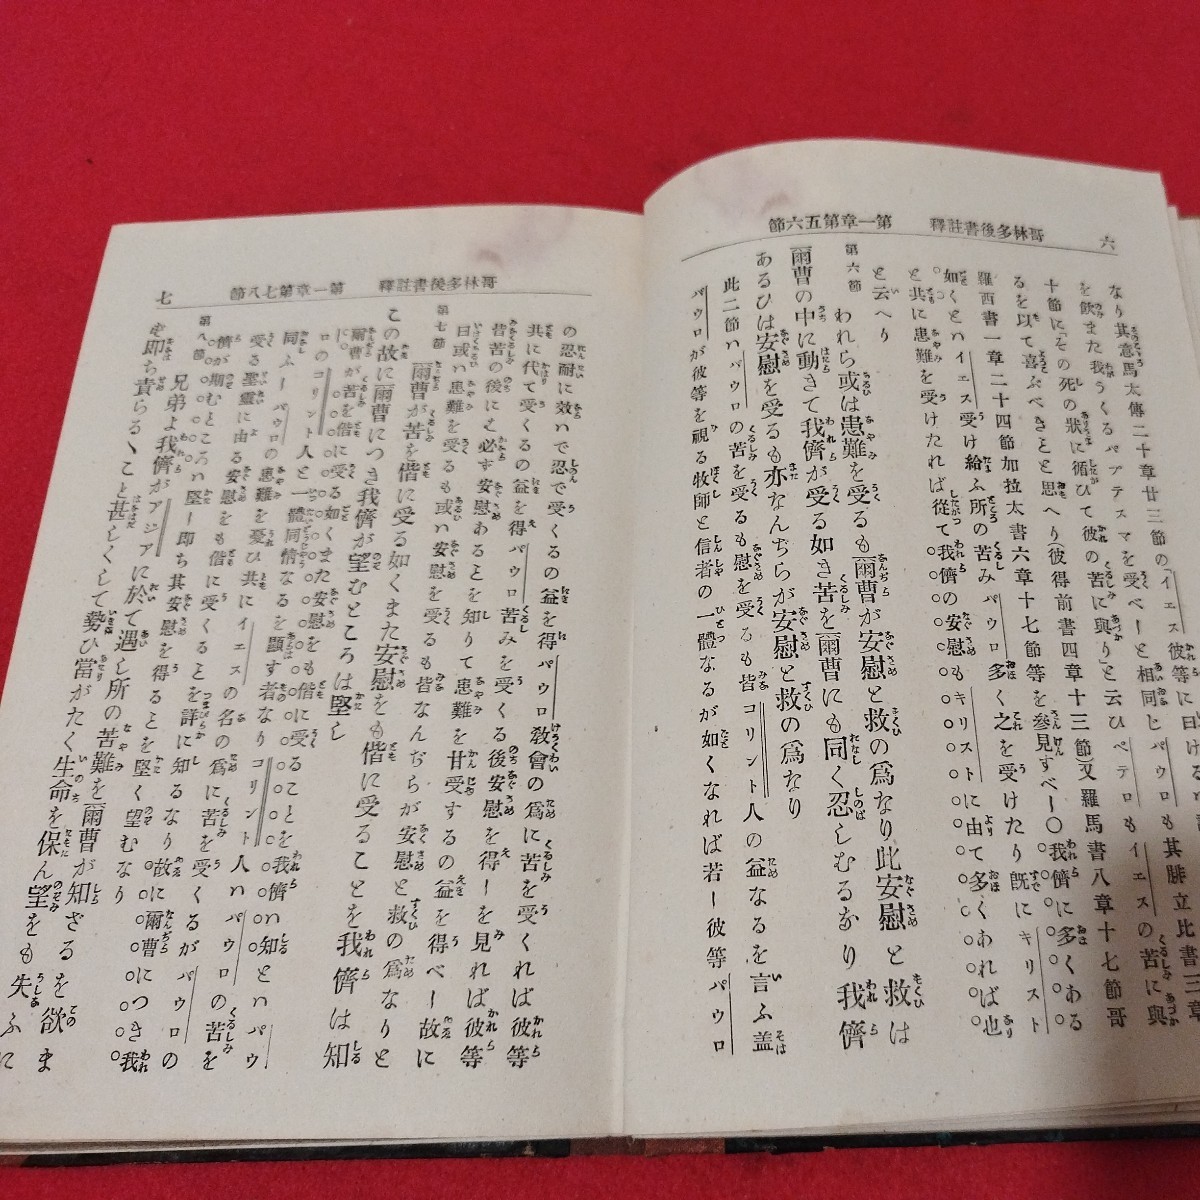 六
哥林多後書註釋　第一章第五六節
なり其意馬太傳二十章廿三節の「イエス彼等に曰けるは
を飲また我うくるバプテスマを受べーと相同じパウロも其腓立比書三章
十節に「その死の狀に循ひて彼の苦に與り」と云ひペテロもイエスの苦に與
るを以て喜ぶべきことと思へり(彼得前書四章十三節)又羅馬書八章十七節哥
羅西書一章二十四節加拉太書六章十七節等を參見すべー〇我儕に多くある
如くとハイエス受け給ふ所の苦みパウロ多く之を受けたり既にキリスト
と共に患難を受けたれば從て我儕の安慰もキリストに由て多くあれば也
と云へり
第六節　われら或は患難を受るも爾曹が安慰と救の爲なり此安慰と救は
爾曹の中に動きて我儕が受る如き苦を爾曹にも同く忍しむるなり我儕
あるひは安慰を受るも亦なんぢらが安慰と救の爲なり
此二節ハパウロの苦を受るも慰を受るも皆コリント人の益なるを言ふ蓋
パウロが彼等を視る牧師と信者の一體なるが如くなれば若ー彼等パウロ
七
哥林多後書註釋　第一章第七八節
の忍耐に效いで忍で受くるの益を得パウロ教會の爲に苦を受くれば彼等
共に代て受くるの益を得パウロ苦みを受くる後安慰を得ーを見れば彼等
皆苦の後にも必ず安慰あることを知りて患難を甘受するの益を得べー故に
曰或ハ患難を受るも或ハ安慰を受るも皆なんぢらが安慰と救の爲なりと
第七節　爾曹が苦を偕に受る如くまた安慰をも偕に受ることを我儕は知
この故に爾曹につき我儕が望むところは堅し
爾曹が苦を偕に受る如くまた安慰をも偕に受ることを我儕ハ知とハパウ
ロのコリント人と一體同情なるを顯す者なりコリント人ハパウロの苦を
同ふーパウロの患難を憂ひ共にイエスの名の爲に苦を受くるがパウロの
受る聖靈に由る安慰をも偕に受くることを詳に知るなり故に爾曹につき我
儕が期むところハ堅ー即ち其安慰を得ることを堅く望むなり
第八節　兄弟よ我儕がアジアに於て遇し所の苦難を爾曹が知ざるを欲ま
ず即ち責らるゝこと甚しくして勢ひ當がたく生命を保ん望をも失ふに